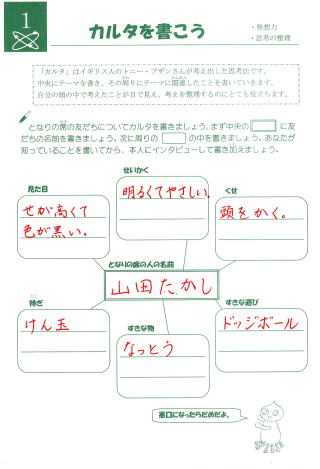 1
カルタを書こう
・発想力
・思考の整理
「カルタ」はイギリス人のトニー・ブザンさんが考え出した思考法です。
中央にテーマを書き、その周りにテーマに関連したことを書いていきます。
自分の頭の中で考えたことが目で見え、考えを整理するのにとても役立ちます。
となりの席の友だちについてカルタを書きましょう。まず中央の に友
だちの名前を書きましょう。次に周りの の中を書きましょう。あなたが
知っていることを書いてから、本人にインタビューして書き加えましょう。
せいかく
明るくてやさしい。
見た目
せが高くて
色が黒い。
くせ
頭をかく。
となりの席の人の名前
山田たかし
特ぎ
けん玉
すきな物
なっとう
すきな遊び
ドッジボール
悪口になったらだめだよ。